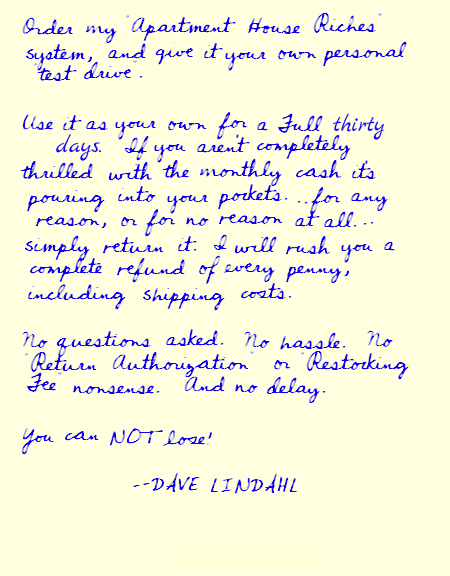 Order my "Apartment House Riches"
system, and give it your own personal
"test drive".
Use it as your own for a Full thirty
days. If you aren't completely
thrilled with the monthly cash it's
pouring into your pockets...for any
reason, or for no reason at all...
simply return it. I will rush you a
complete refund of every penny,
including shipping costs.
No questions asked. No hassle. No
"Return Authorization" or "Restocking
Fee" nonsense. And no delay.
You can NOT lose!
--DAVE LINDAHL